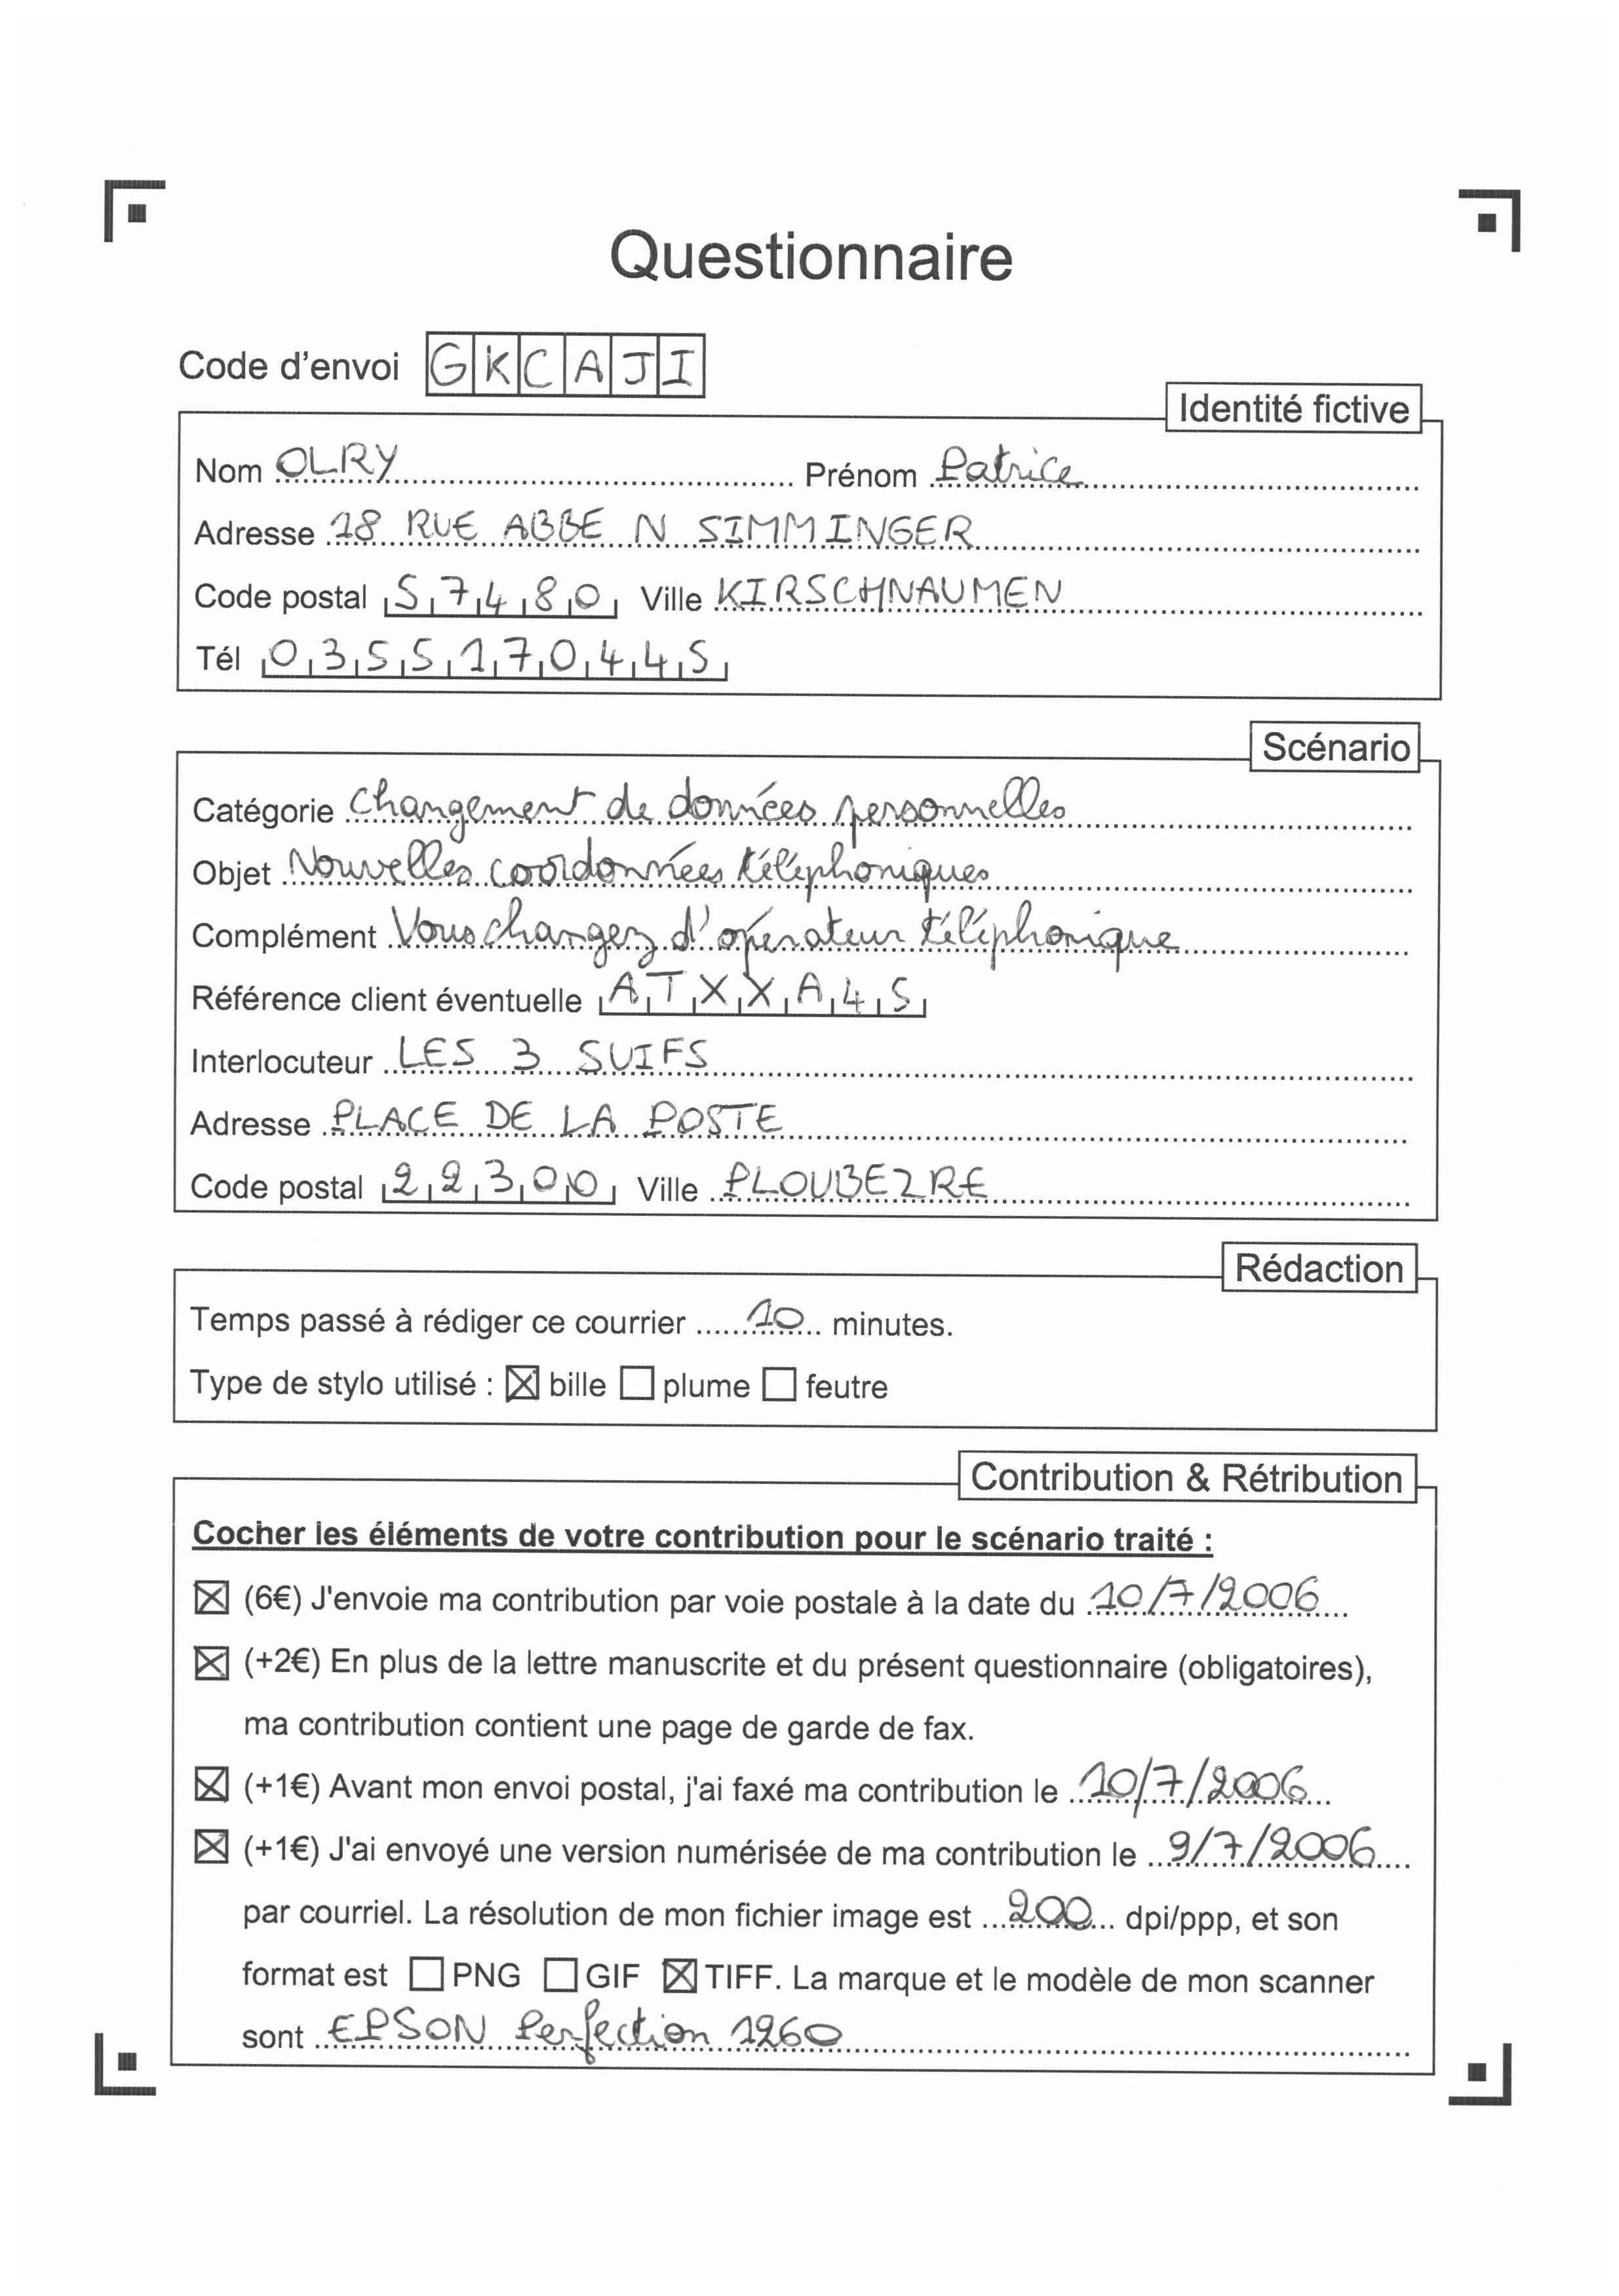 Questionnaire
Code d'envoi GKCAJI
Identité fictive
Nom OLRY Prénom Patrice
Adresse 18 RUE ABBE N SIMMINGER
Code postal 57480 Ville KIRSCHNAUMEN
Tél 0355170445
Scénario
Catégorie Changement de données personnelles
Objet Nouvelles coordonnées téléphoniques
Complément Vous changez d'opérateur téléphonique
Référence client éventuelle ATXXA45
Interlocuteur LES 3 SUIFS
Adresse PLACE DE LA POSTE
Code postal 22300 Ville PLOUBEZRE
Rédaction
Temps passé à rédiger ce courrier 10 minutes.
Type de stylo utilisé : ☒ bille ☐ plume ☐ feutre
Contribution & Rétribution
Cocher les éléments de votre contribution pour le scénario traité :
☒ (6€) J'envoie ma contribution par voie postale à la date du 10/7/2006
☒ (+2€) En plus de la lettre manuscrite et du présent questionnaire (obligatoires),
ma contribution contient une page de garde de fax.
☒ (+1€) Avant mon envoi postal, j'ai faxé ma contribution le 10/7/2006
☒ (+1€) J'ai envoyé une version numérisée de ma contribution le 9/7/2006
par courriel. La résolution de mon fichier image est 200 dpi/ppp, et son
format est ☐ PNG ☐ GIF ☒ TIFF. La marque et le modèle de mon scanner
sont EPSON Perfection 1260